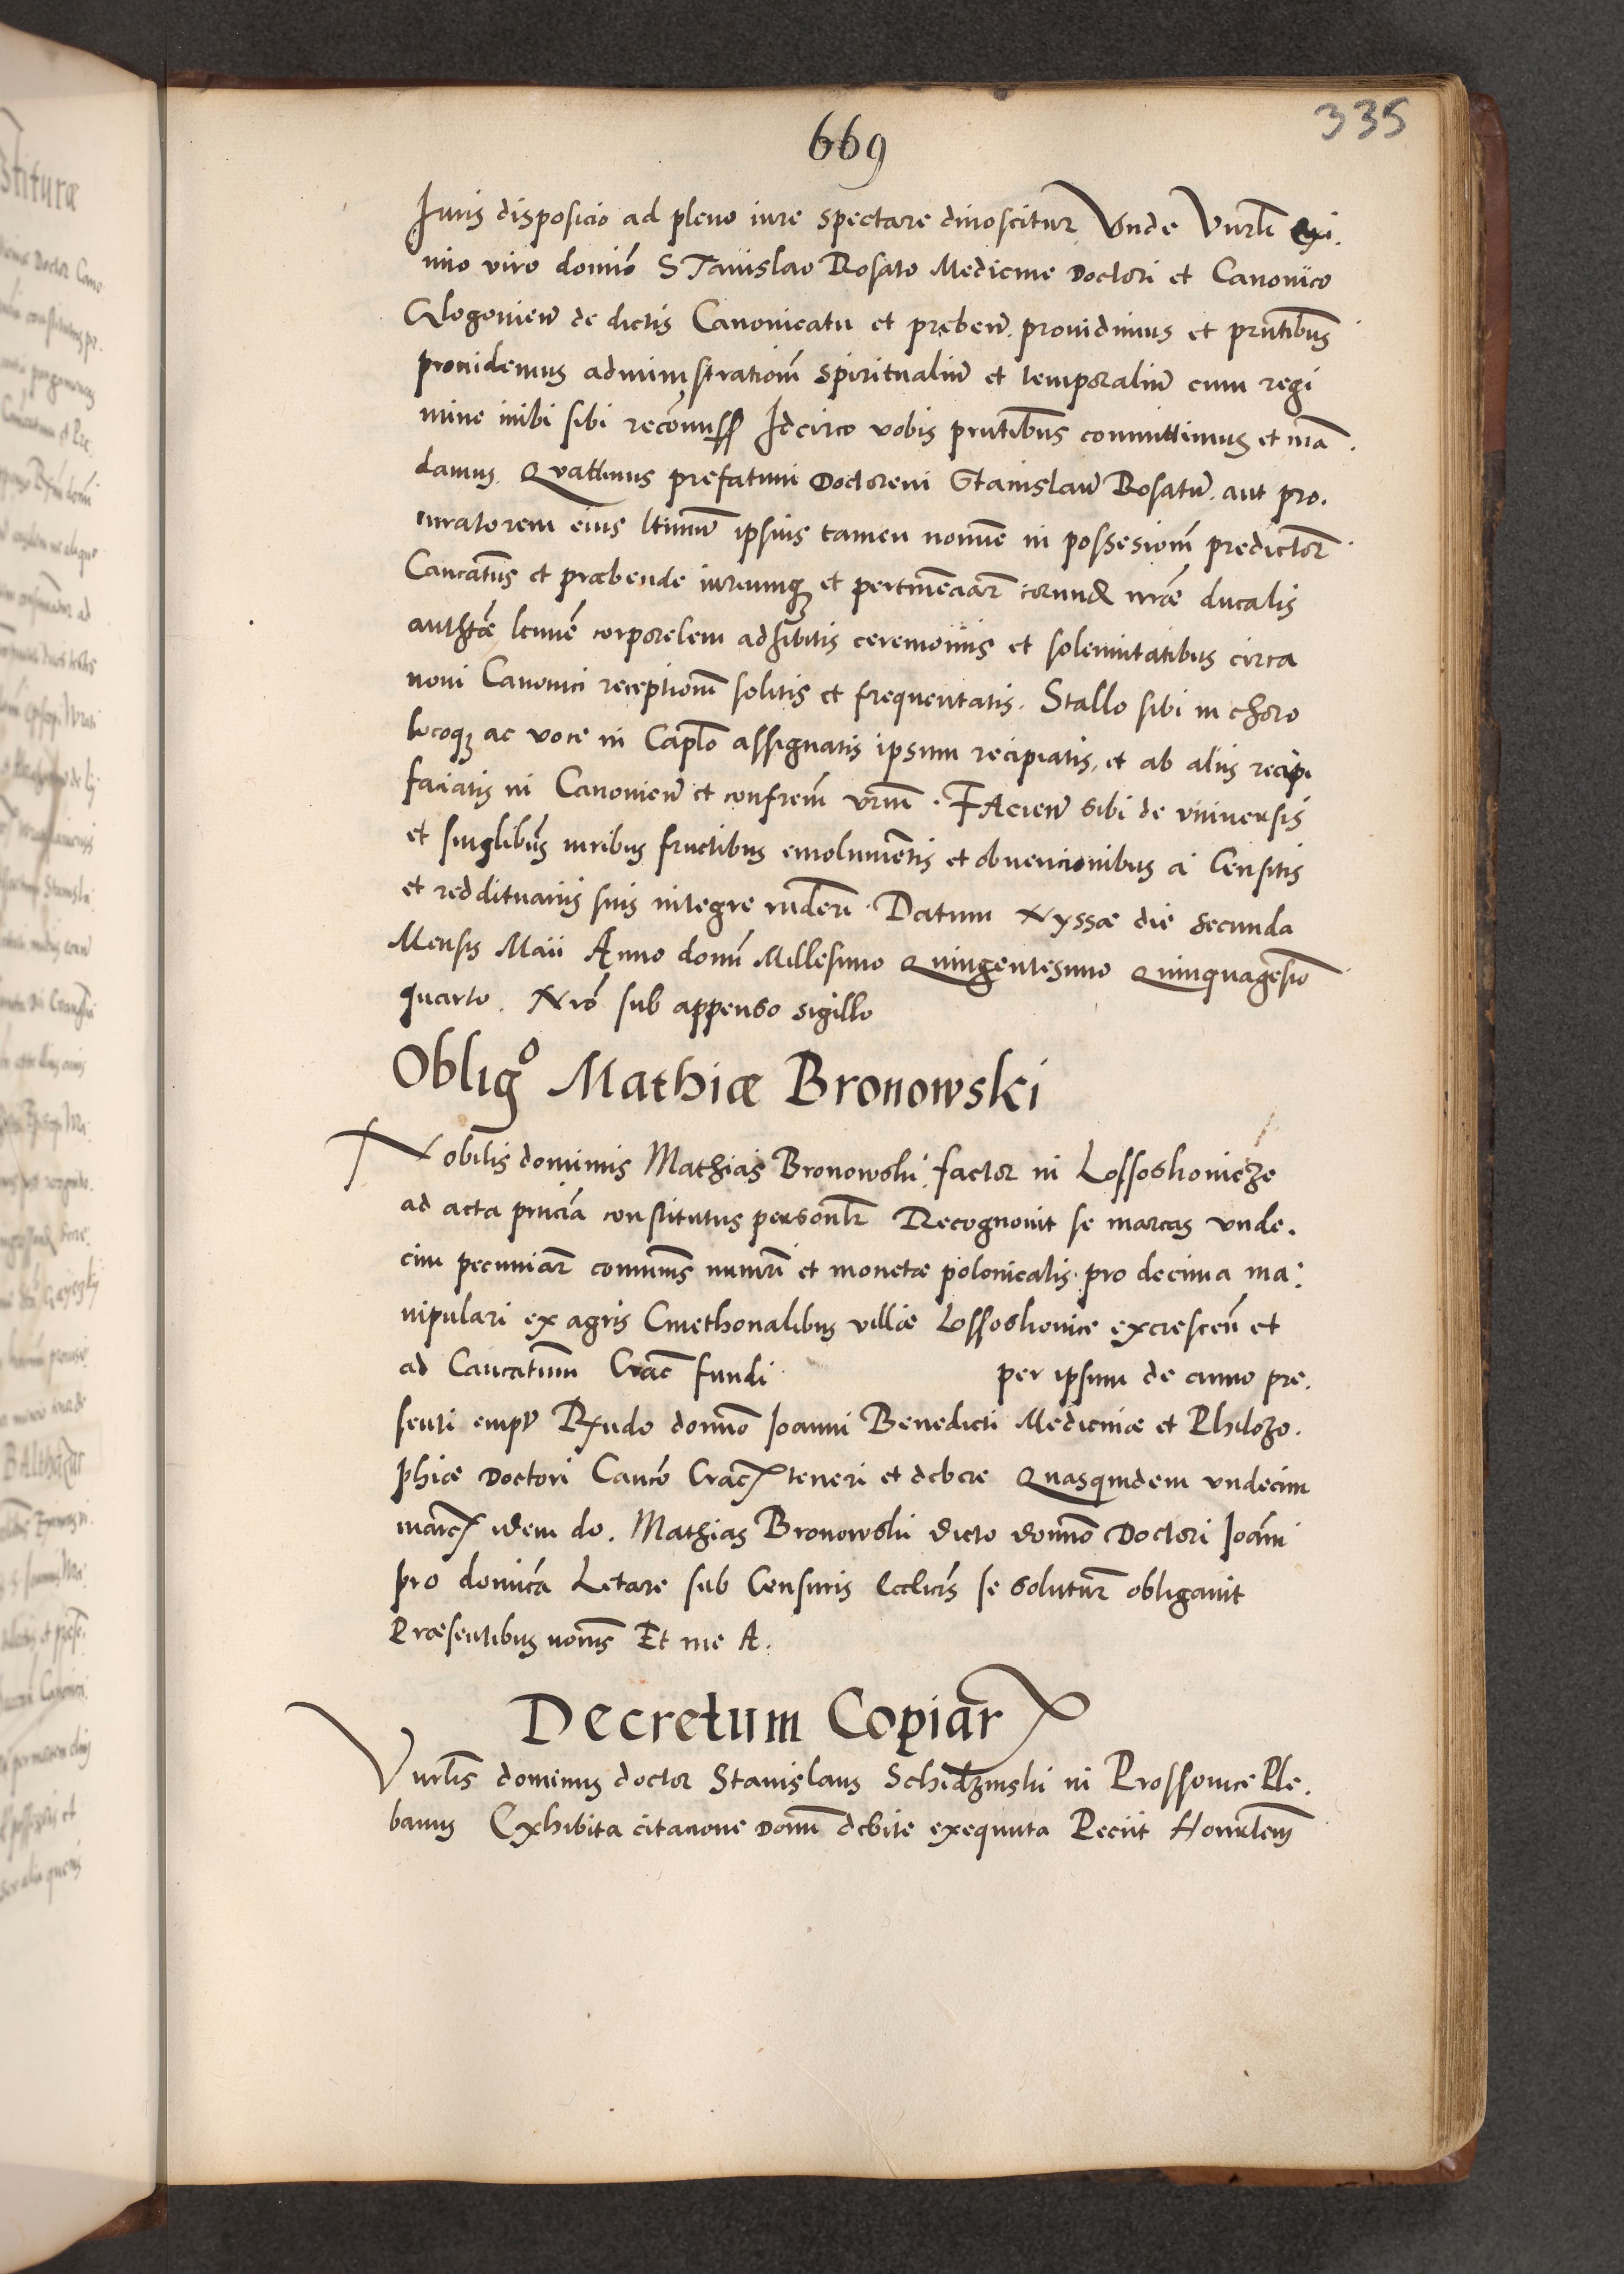 335
669
Juris disposicio ad pleno iure spectare dinoscitur Vnde Vnrli exi.
mio viro domiō STanislao Rosato Medicine Doctori et Canonico
Glogovien̄ de dictis Canonicatu et preben̄. prouidimus et pn̄tibus
prouidemus administrationē spiritualiū et temporaliū cum regi
mine inibi sibi recōmiss Idcirco vobis pn̄tibus committimus et mā
damus. Quatenus prefatum Doctorem Stanislaū Rosatū. aut pro.
curatorem eius ltimū ipsius tamen nomīe in possesionē predictor̄
Canc̄atus et præbende iuriumq; et pertinēciar̄ eorund nr̄æ ducalis
autht̄æ corporelem adhibitis ceremoniis et solemnitatibus circa
noui Canonici receptionē solitis et frequentatis. Stallo sibi in choro
locoq; ac voce in Capl̄o assignatis ipsum recipiatis, et ab aliis recipi
faciatis in Canonicū et confrem̄ vr̄m. FAcien̄ sibi de vniuersis
et singlibus iuribus fructibus emolumētis et obuencionibus a Censitis
et reddituariis suis integre rnderi. Datum Nyssæ die secunda
Mensis Maii Anno domī Millesimo Quingentesimo Quinquagesīo
quarto. Nr̄o sub appenso sigillo
Oblig° Mathiæ Bronowski
Nobilis dominus Mathias Bronowski factor in Lossoskonicze
ad acta pn̄cia constitutus personlr̄ Recognouit se marcas vnde.
cim pecuniar̄ comunis numeri et monetæ polonicalis pro decima ma:
nipulari ex agris Cmethonalibus villæ Lossoskonice excrescen̄ et
ad Cancatum Crac̄ fundi per ipsum de anno pre.
senti empt Rn̄do domīo Joanni Benedicti Medicinæ et Philozo.
phiæ Doctori Canc̄o Crac teneri et debere Quasquidem vndecim
marc idem do. Mathias Bronowski dicto domīo Doctori Joāni
pro domīca Letare sub Censuris Eccl̄icis se soluturū obligauit
Præsentibus Et me A.
Decretum Copiar
Vnrlis dominus doctor Stanislaus Schidzinski in Prossouice Ple.
banus Exhibita citacione Domī debite exequuta Peciit Honrl̄em